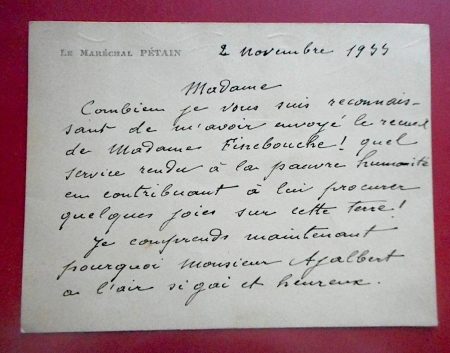 LE MARÉCHAL PÉTAIN
2 Novembre 1933
Madame
Combien je vous suis reconnais-
sant de m'avoir envoyé le recueil
de Madame Finebouche! quel
service rendu à la pauvre humanité
en contribuant à lui procurer
quelques joies sur cette terre!
Je comprends maintenant
pourquoi Monsieur Ajalbert
a l'air si gai et heureux.